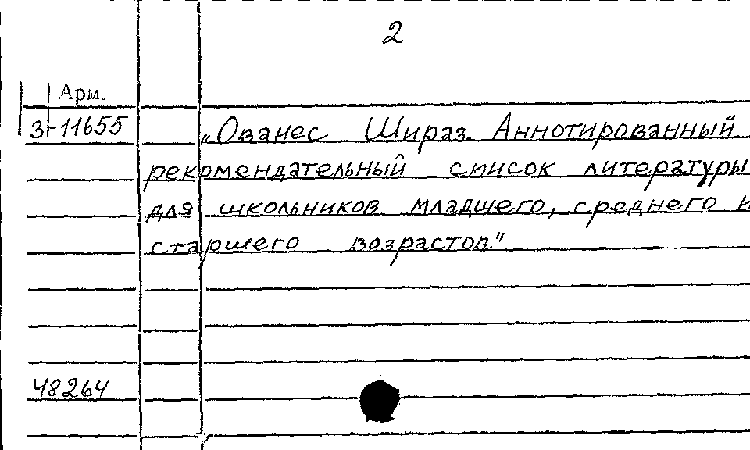 2
Арм.
3-11655
„Ованес Шираз. Аннотированный
рекомендательный список литературы
для школьников младшего, среднего и
старшего возрастов"
48264